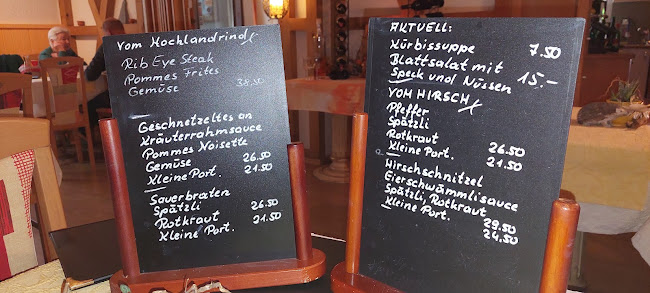 Vom Hochlandrind
Rib Eye Steak
Pommes Frites
Gemüse 38.50
Geschnetzeltes an
Kräuterrahmsauce
Pommes Noisette
Gemüse 26.50
Kleine Port. 21.50
Sauerbraten
Spätzli
Rotkraut 26.50
Kleine Port. 21.50
AKTUELL:
Kürbissuppe 7.50
Blattsalat mit
Speck und Nüssen 15.-
VOM HIRSCH
Pfeffer
Spätzli
Rotkraut 26.50
Kleine Port. 21.50
Hirschschnitzel
Eierschwämmlisauce
Spätzli, Rotkraut 29.50
Kleine Port. 24.50